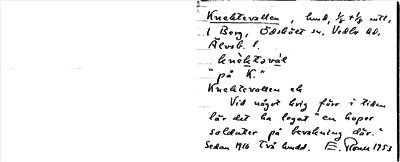 Knektevallen, hmd, 1/6 + 1/6 mtl,
i Berg, Ödskölt sn, Vedbo hd,
Älvsb. l.
knèktəvál
"på K."
Knektevallen ek
Vid något krig förr i tiden
lär det ha legat "en hoper
soldater på bevakning där."
Sedan 1916 två hmdd. E. 1953